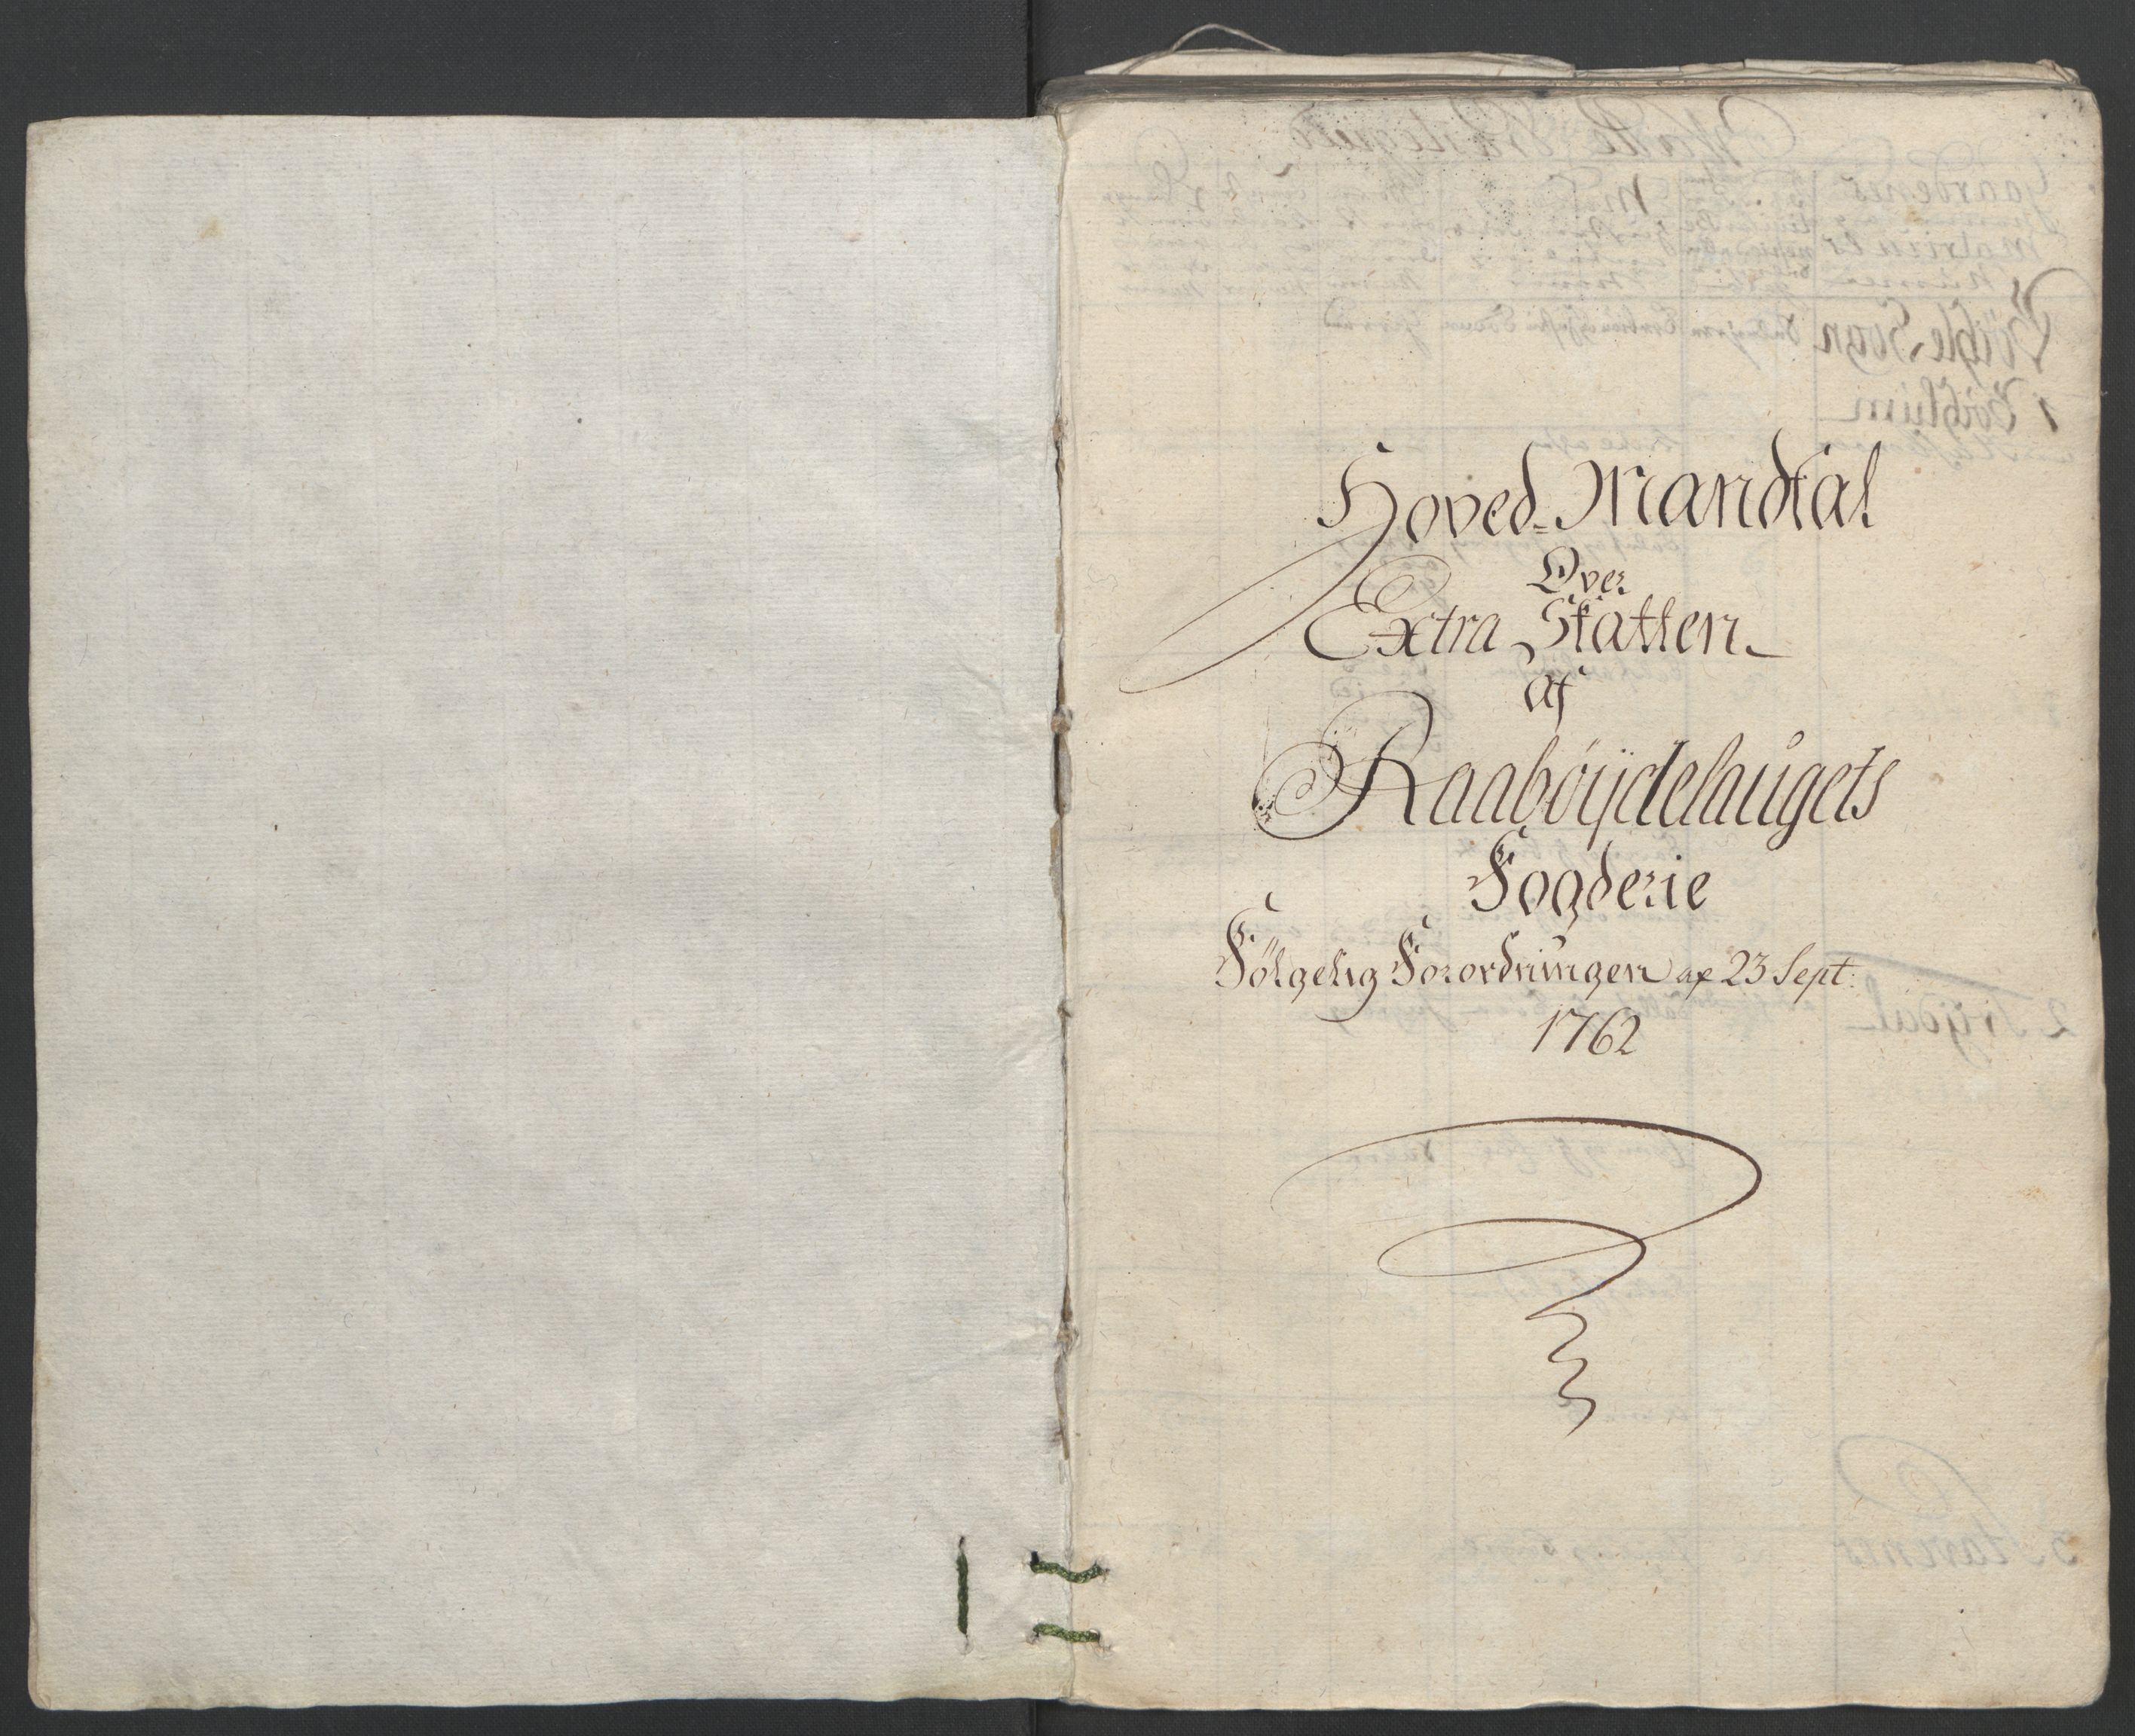 Hoved-Mandtal
Over
Extra Skatten
af
Raaböÿdelaugets
Fogderie
Fölgelig Forordningen af 23 Sept:
1762